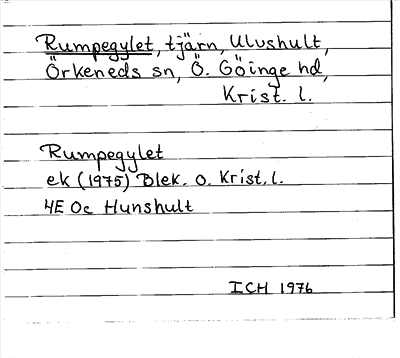 Rumpegylet, tjärn, Ulvshult,
Örkeneds sn, Ö. Göinge hd,
Krist. l.
Rumpegylet
ek (1975) Blek. o. Krist. l.
4E Oc Hunshult
ICH 1976